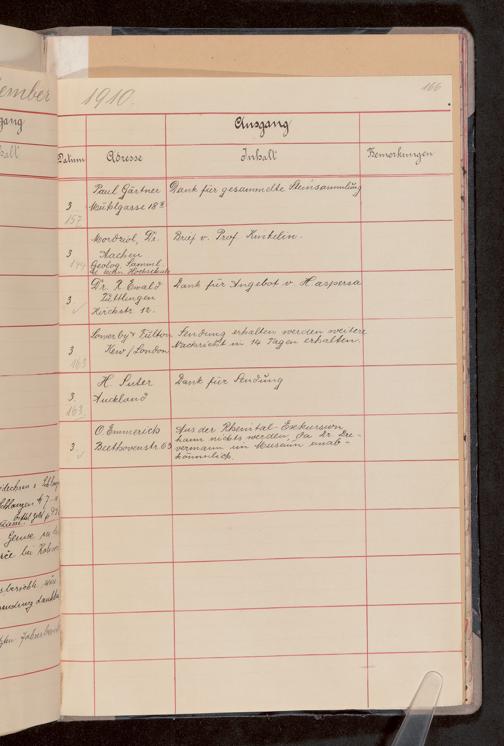 ember
gang
halt
1910.
166
Ausgang
Datum
Adresse
Inhalt
Bemerkungen
3
157
Paul Gärtner
Mühlgasse 18
Dank für gesammelte Steinsammlung
3
144
Mordziol, Dr.
Aachen
Geolog. Samml.
d. techn. Hochschule
Brief v. Prof. Kinkelin.
3
Dr. R. Ewald
Tüttlingen
Kirchstr. 12.
Dank für Angebot v. H. aspersa
3
163
Sowerby & Fulton
Kew / London
Sendung erhalten werden weitere
Nachricht in 14 Tagen erhalten.
3
163.
H. Suter
Auckland
Dank für Sendung
3
O. Emmerich
Beethovenstr. 63
Aus der Rheintal-Exkursion
kann nichts werden, da Dr. Dre-
vermann im Museum unab-
kömmlich.